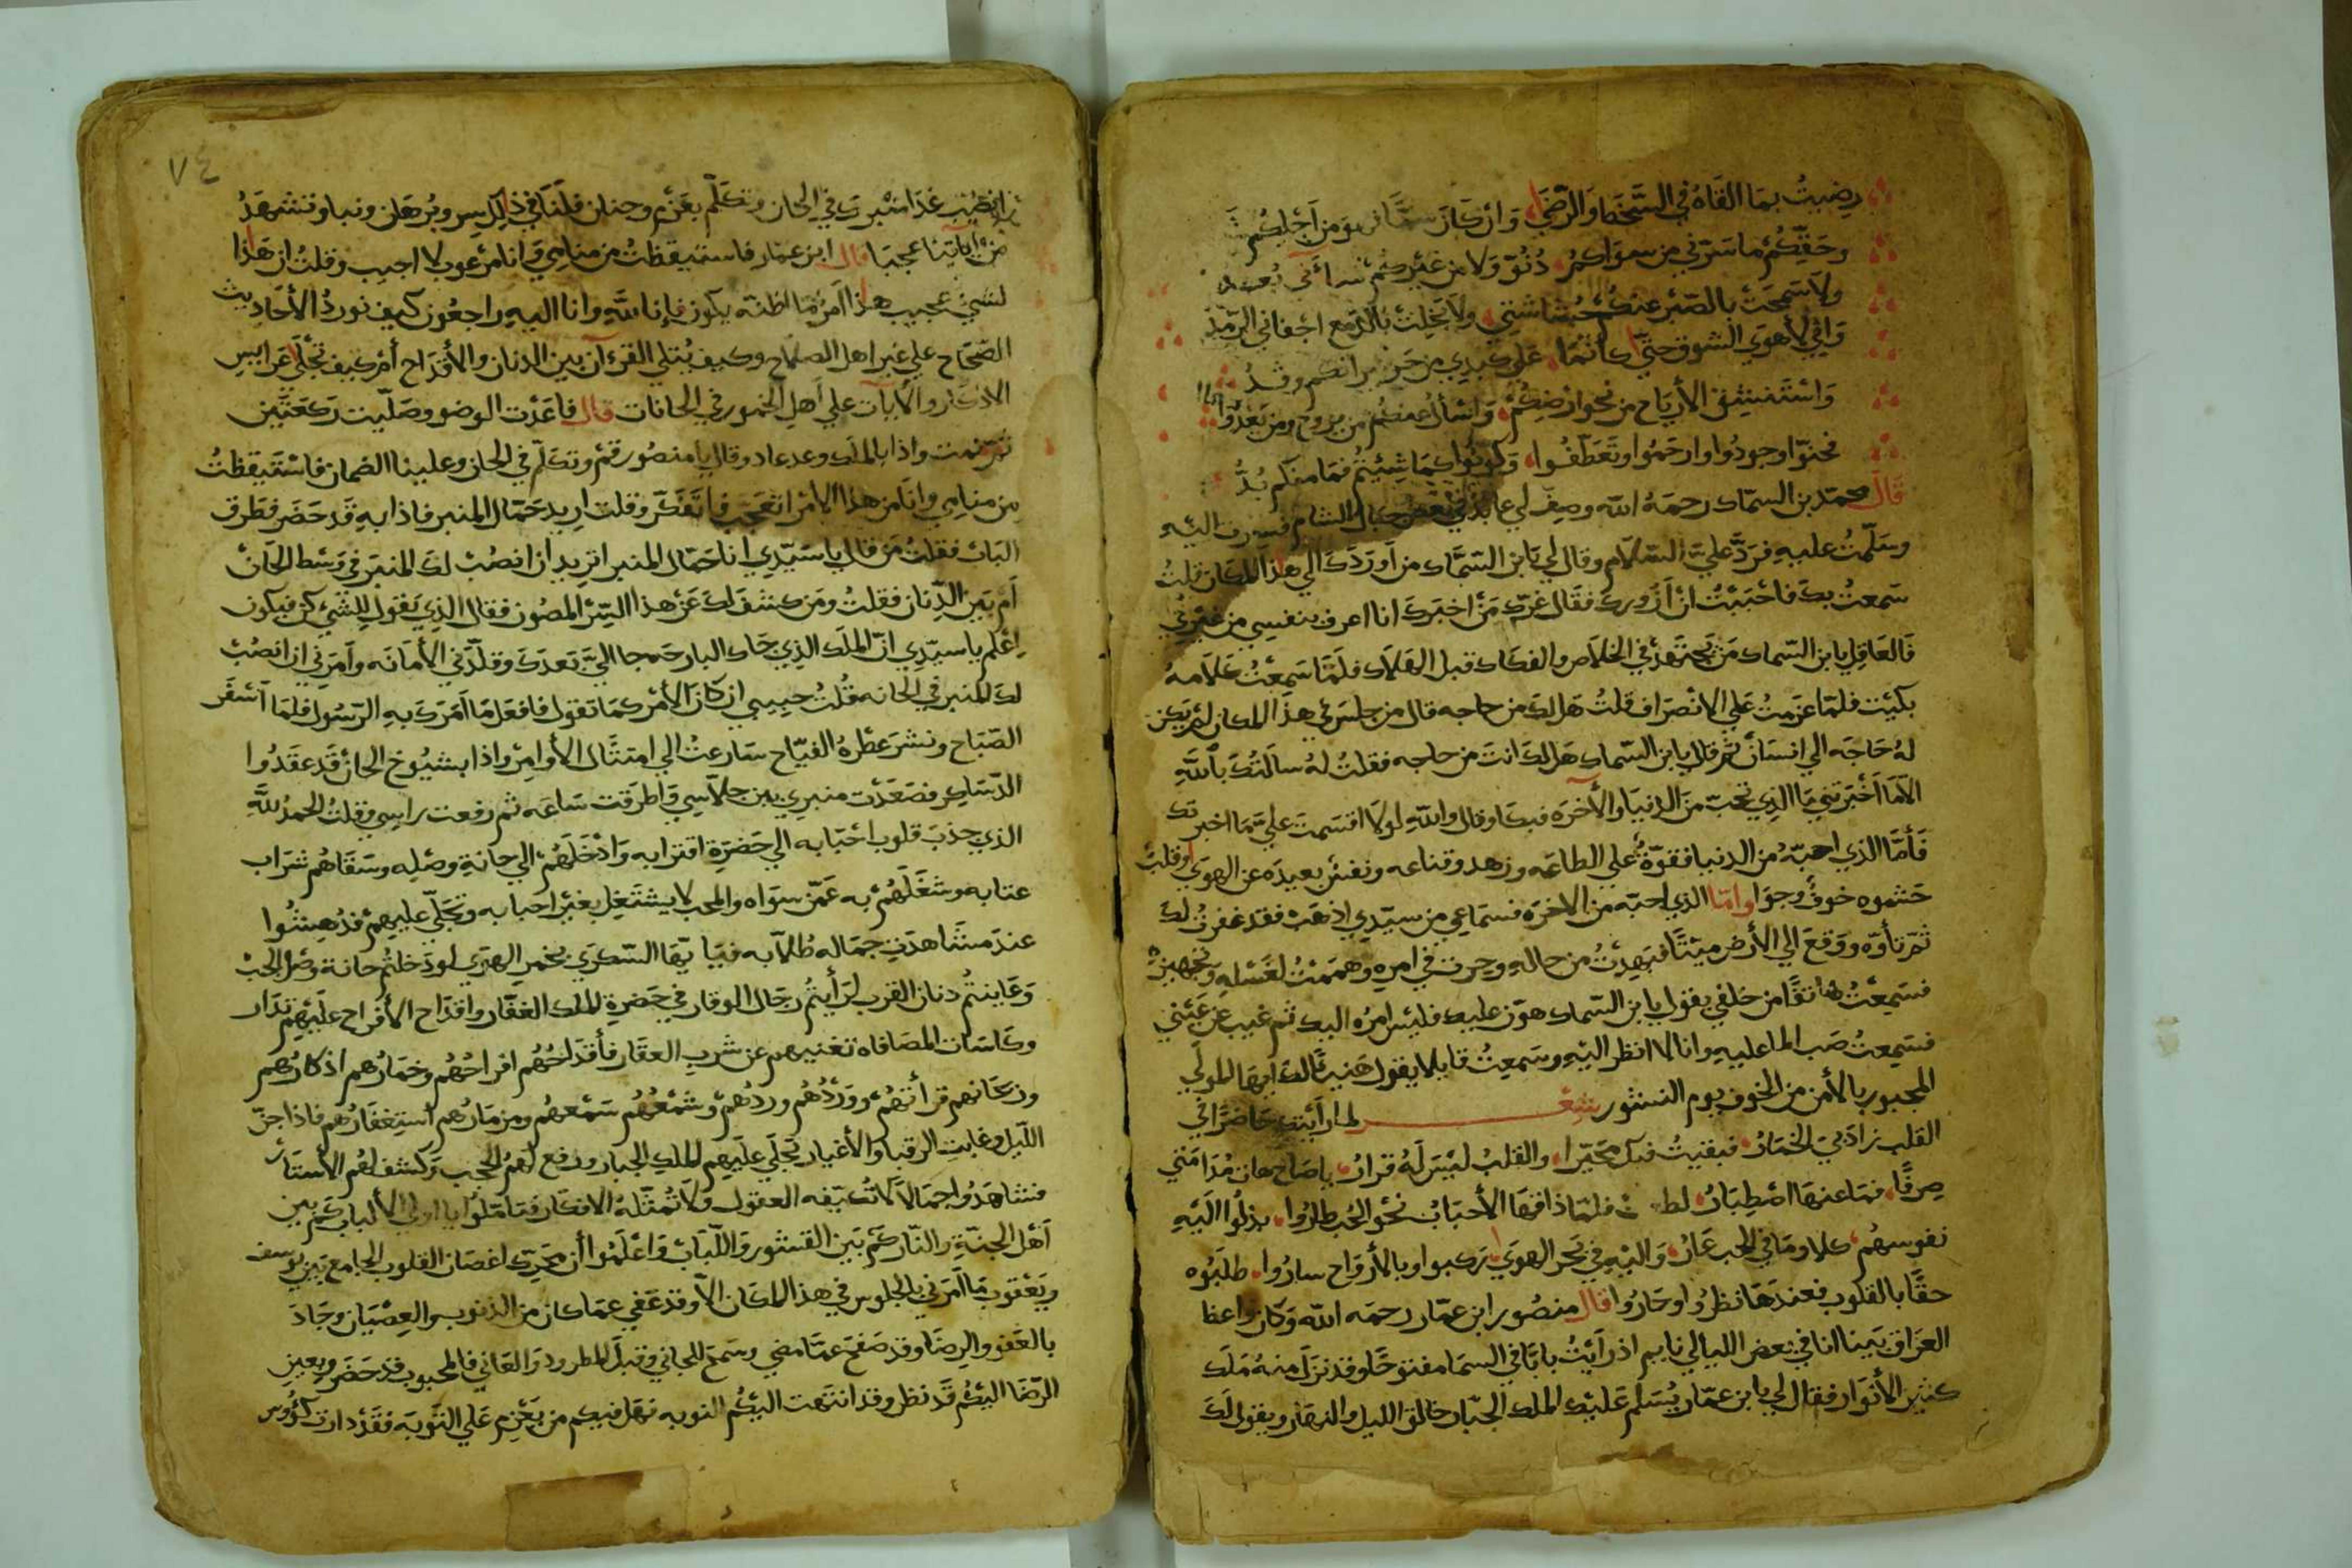 رضيتُ بما القاهُ في السَّخط والرّضَي وَان كَانَ مِن اَجلِكُم
وحَقِّكُمْ ما سَرّني من سِوَاكمُ دُنُوّ وَلا من غَيْركُمْ سَاءَني بُعد
ولا سَمِحَتْ بالصّبْر عنكُمْ حُشاشتي ولا بَخِلتْ بالدّمع اجفاني الرّمدُ
وَاِنّي لأهوَي الشوق حتّي كأنّما عَلى كبدي من حَرّ نيرانكم وقدُ
وَاسْتَنشِقُ الأرياح من نحو ارضِكُمْ وَاَسْأَلُ عنكُم من يروح ومن يَغْدُوا
فحنّوا وجودُوا وارحَمُوا وتَعَطّفُوا وَكونُوا كمَا شِيْتُمْ فمَا منكم بُدُّ
قالَ محمّد بن السمّاك رحمَهُ الله وصِفَ لي عابدٌ في بَعض جبال الشام فسِرت اليْهِ
وسَلّمتُ عليهِ فرَدَّ عليَّ السّلام وقال لي يَا بن السّمَّاك من اَورَدَكَ الي هذا المكان قلتُ
سَمعتُ بكَ فاحْبَبْتُ انْ اَزُوركَ فقَالَ غرّكَ مَنْ اخبَركَ انا اعرف بنفسِي من غيْري
فَالعَاقِل يا بن السّماك مَن يجتَهدُ في الخلاَص والفكاك قبل الهَلاك فلَمَّا سَمِعْتُ كلاَمهُ
بكَيْت فلمّا عزَمتُ عَلي الانْصَراف قلتُ هَل لكَ من حاجه قال من جلسَ في هذا المكان لَمْ يَكن
لهُ حَاجَه الي انسَان ثم قال يا بن السّماك هَل لكَ انتَ من حاجه فقلتُ لهُ سالتُكَ بالله
الاّ مَا اَخْبَرتني مَا الذِي تحبّ منَ الدنيَا والأخرَه فبكا وقال والله لولاَ اقسَمتَ عليَّ مَا اخبرتك
فَأمَّا الذي احبّهُ من الدنيا فقوّةٌ علي الطاعَه وزهد وقناعه ونفسْ بعيدَه عن الهوَي وقلبْ
حَشوه خوفٌ وجوَا وامّا الذي احبّه من الاخرَه فسَماعي من سيّدي اذهَبْ فقد غفرتُ لكَ
ثمّ تأوّه ووقعَ الي الأرض ميْتًا فبَهِتُّ من حالهِ وحِرت في امره وهَممْتُ لغَسْلهِ وتجهيزهْ
فسَمِعْتُ هاتفًا من خلفي يقول يا بن السّماك هوّن عليك فليْس امرُه اليك ثم غيب عن عَيْني
فسَمِعتُ صَب الما عليهِ وانا لا انظر اليْهِ وسَمعتُ قايلا يقول هَنيئًا لكَ ايهَا الموَلّي
المحبور بالأمن من الخوف يوم النشور شِعْر لما رَاَيْتك حَاضرًا في
القلب زادَ بيَ الخمارُ فبقيتُ فيك محَيّرا والقلبُ ليْسَ لهُ قرارُ يا صَاح هات مُدَامَتي
صِرفًا فمَا عنهَا اصْطِبَارُ فلمّا ذاقهَا الأحبَابْ نحْو الحُب طارُوا بذلُوا اليَْهِ
نفوسهُم كلا ومَا في الحب عَارُ وَاليْهِ في بَحر الهوَي ركبوا وبالأرْوَاح سارُوا طلبُوه
حقًّا بالقلوب فعندَهَا نظرُوا وحَارُوا قال منصُور ابن عمّار رحمَه الله وَكَان واعظ
العرَاق بَينا انا في بَعض الليالي نايم اذ رَاَيْتُ بابًا في السمَا مفتوحًا وقد نزلَ منهُ مَلَك
كثير الأنوَار فقال لي يا بن عمّار يُسَلم عَليْك الملك الجبّار خالق الليل والنهار ويقول لَكَ
٧٤
انصُب غدَا منْبرك في الحان وتكَلّم بعَزْم وجنان فلنا في ذلك سر وبُرهان ونبا وتشهَدُ
منْ اَياتِنا عجبَا قال ابن عمّار فاستَيقظتُ من منامِي وَانا مَرعوب لا اجيب وقلتُ ان هَذا
لشيءْ عجيب هذا اَمرٌ مَا اظنّه يكون فإنا لله وانا اليهِ راجعُون كيف نوردُ الأحَاديث
الصّحَاح علي غير اهل الصلاح وكيف يُتلي القرءان بين الدنان والأقدَاح أمْ كيف تجْلَى عَرايس
الاذكار والأيَات علي أهل الخمور في الحانات قال فاعَدْت الوضو وصَلّيت رَكعَتَين
ثم نمت واذا بالملك وعد عاد وقال يا منصُور قمْ وتكَلّم في الحان وعلينا الضمان فاسْتَيقظتُ
من منامِي وانَا من هذا الامر اتعَجّب فاتَفَكّر وقلت اريد حَمّال المنبر فاذا بهِ قَد حَضَر فطَرق
البَابْ فقلتُ مَن قال يا سَيّدي انا حَمّال المنبر اتريد ان انصُبْ لكَ المنبَر في وَسْط الحَانْ
أم بَين الدِّنان فقلتُ ومَن كشفَ لكَ عَنْ هذا السِّرْ المصُون فقال الذِي يَقول للشّيْ كن فيكون
اِعْلم يا سيّدِي انّ الملَك الذي جَاك البارحَه جا اليَّ بَعدَكَ وقلّدَني الأمَانه وأمَرَني ان انصُبْ
لك المنبر في الحانه قُلتُ حبيبي ان كانَ الأمْر كمَا تقول فافعَل مَا اَمَركَ به الرّسُول فلمَا اَسْفَر
الصّبَاح ونشرَ عطرهُ الفيّاح سَارعتُ الي امتثال الأوامِرْ واذا بشيُوخ الحانْ قَد عقدُوا
الدّسَاكِر فصَعَدْت منبري بين جلاّسي وَاطرَقت سَاعَه ثم رفعت راسي وقلتُ الحمدُ لله
الذي جذبَ قلوب احْبَابه الي حَضرَةِ اقترابه وَادْخَلهُمْ الي حانة وصْلِه وسَقَاهُم شرَاب
عتابه وشغَلَهُمْ به عَمّن سِوَاه والمحب لا يشتَغِل بغيْر احبابه وتجَلّي عليهِمْ فدُهِشُوا
عندَ مشَاهدَةِ جمَاله طُلاّبه فيَا بَقا السّكرَي بخمرِ الهوَي لو دَخلتُم حانة وصْل الحبْ
وَعَاينتُم دنان القرب لرَأيتُم رجَال الوقار في حَضرةِ الملك الغفّار واقدَاح الأفرَاح علَيْهِم تدَار
وكَاسَات المصَافاه تغنيهم عن شرب العقَار فأقدَاحُهُم افراحُهُم وخمَارُهم اذكارُهم
وريحَانهم قرأتهُمْ ووَرْدُهُم وردُهمْ وشمْعُهُم سَمْعهُم ومزمَارُهم أستِغفَارُهم فاذا جنّ
اللّيل وغابتِ الرقبَا والأغيار تَجَلّي علَيهِم الملك الجبار ورفع لهُمُ الحجب وَكشف لهُم الأستَار
فشاهَدُوا جمَالاً لا تُكيّفه العقول وَلاَ تُمثّلهُ الافكَار فتَامّلوا يا اولي الألباب كَم بين
أهْل الجنّةِ والنّار كَمْ بَين القشور وَاللّبَابْ وَاعْلَمُوا أن محَرّك اغصَان القلوب الجامع بَين يُوسف
ويَعْقوب مَا اَمَرَني بالجلوس في هذا المكَان الاّ وقدْ عَفي عمَا كان من الذنوب والعِصْيَان وجَادَ
بالعَفو والرِضَا وقد صَفحَ عمَّا مضي وسَمحَ للجاني وقبلَ المطرود والعَاني فالمحبوب قد حَضَر وبعين
الرّضَا اليْكُم قَد نظر وقد انتَهت اليكُم التوبه فهَل فيكم من يَعْزِم عَلي التّوبَه فقَدْ دارت كؤُوس